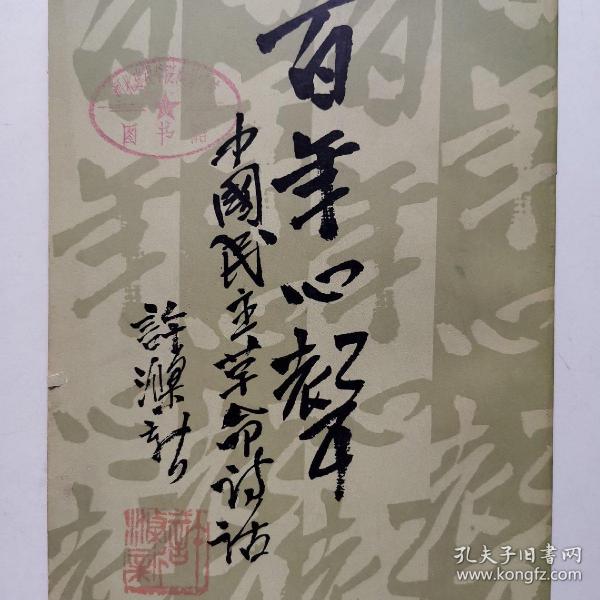 百年心聲
中國民主革命诗话
許滌新
图书
孔夫子旧书网
www.kongfz.com